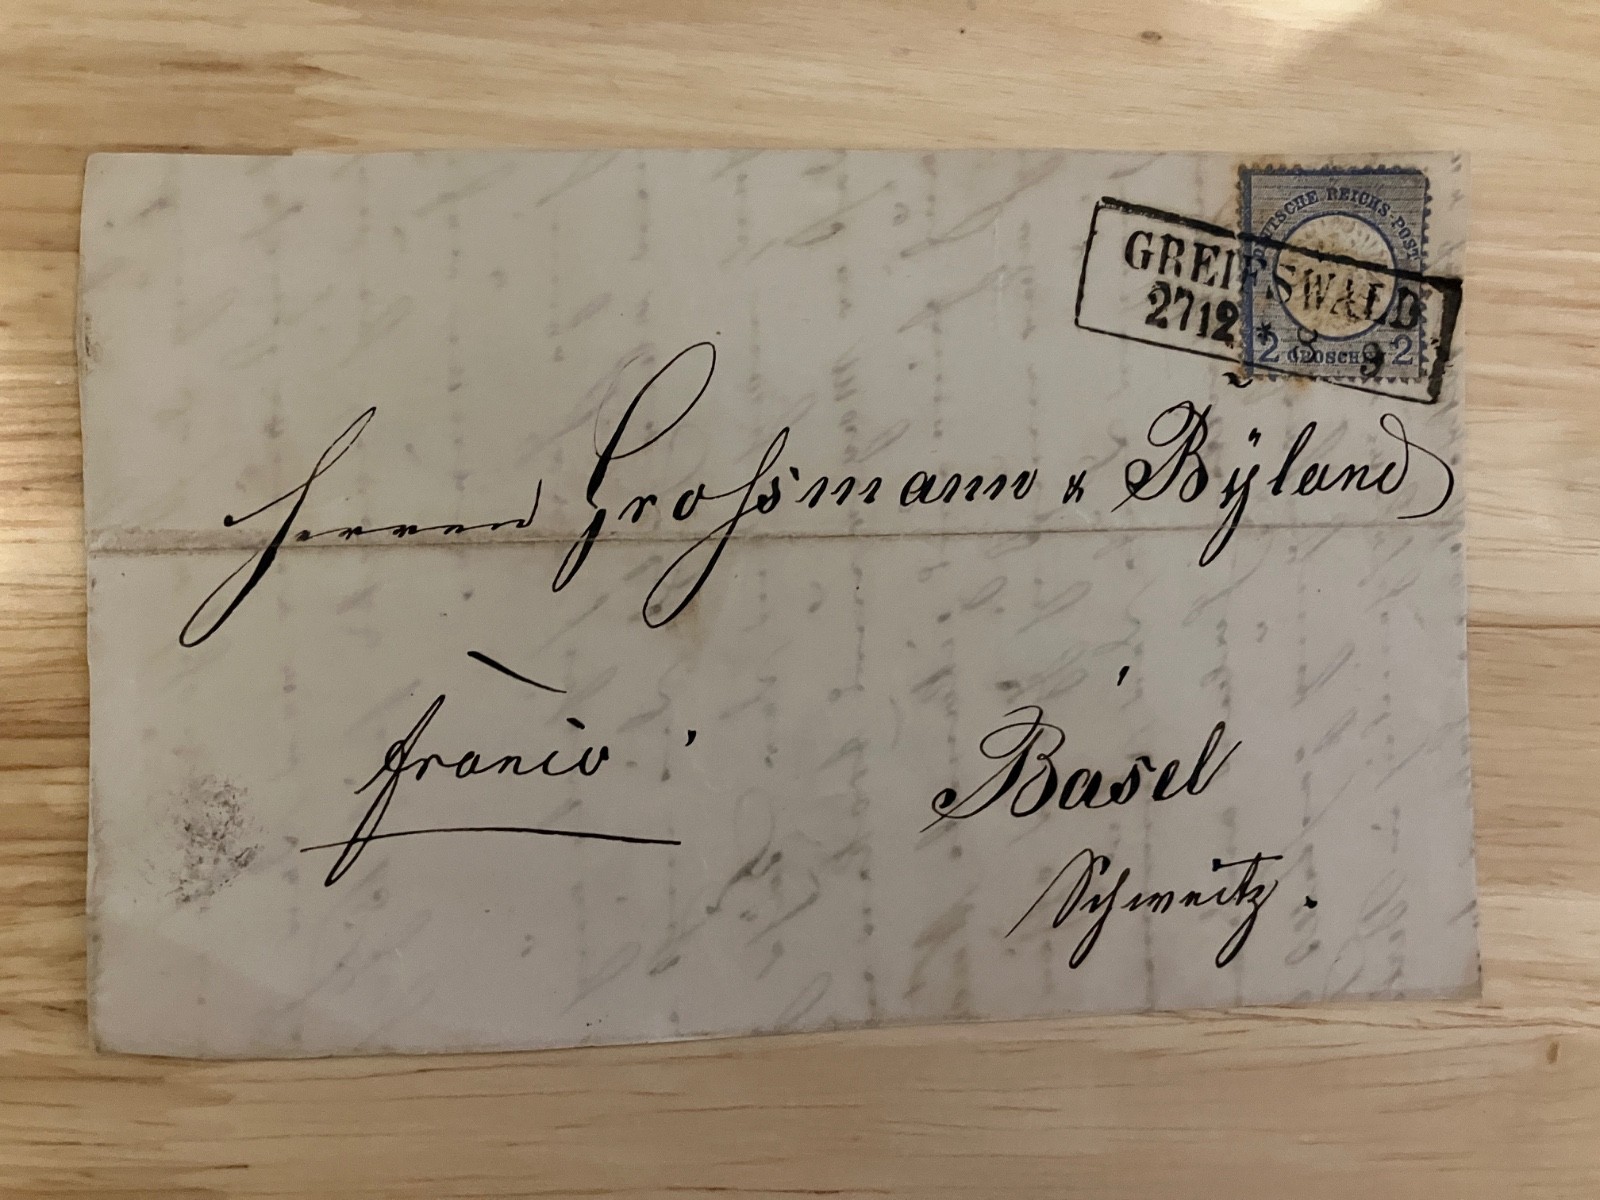 DEUTSCHE REICHS-POST
GREIFSWALD
27 12 * 8 9
2 GROSCHEN 2
Herren Grossmann & Byland
franco
Basel
Schweitz.